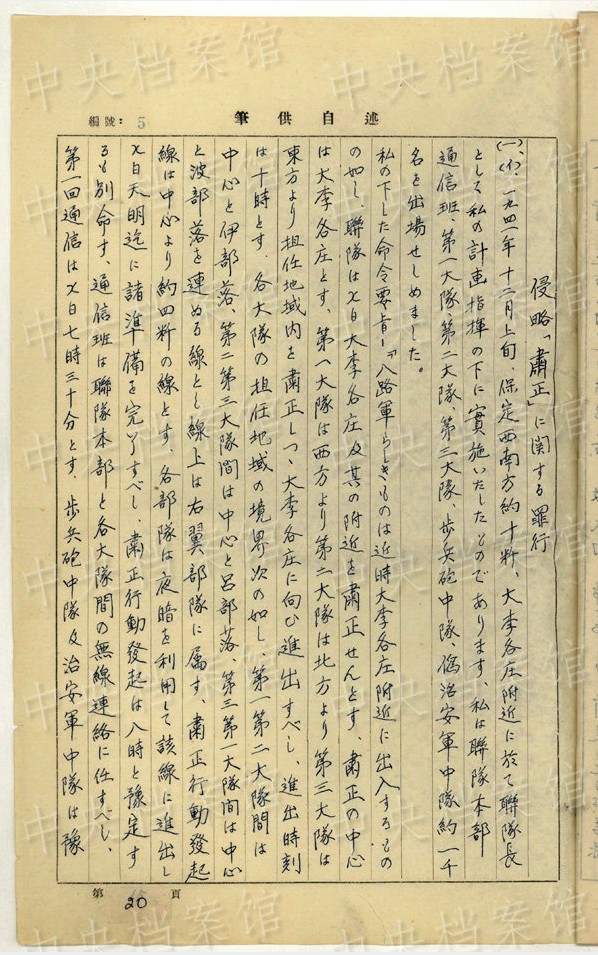 編號: 5
筆供自述
侵略「肅正」に関する罪行
(一)、(イ)、一九四一年十二月上旬、保定西南方約十粁、大李各庄附近に於て聯隊長
として私の計画指揮の下に實施いたしたものであります、私は聯隊本部
通信班、第一大隊、第二大隊、第三大隊、歩兵砲中隊、偽治安軍中隊約一千
名を出場せしめました。
私の下した命令要旨＝『八路軍らしきものは近時大李各庄附近に出入するもの
の如し、聯隊はX日大李各庄及其の附近を肅正せんとす、肅正の中心
は大李各庄とす、第一大隊は西方より第二大隊は北方より第三大隊は
東方より担任地域内を肅正しつゝ大李各庄に向ひ進出すべし、進出時刻
は十時とす、各大隊の担任地域の境界次の如し、第一第二大隊間は
中心と伊部落、第二第三大隊間は中心と呂部落、第三第一大隊間は中心
と波部落を連ぬる線とし線上は右翼部隊に属す、肅正行動發起
線は中心より約四粁の線とす、各部隊は夜暗を利用して該線に進出し
X日天明迄に諸準備を完了すべし、肅正行動發起は八時と豫定す
るも別命す、通信班は聯隊本部と各大隊間の無線連絡に任ずべし、
第一回通信はX日七時三十分とす、歩兵砲中隊及治安軍中隊は豫
第 20 頁
中央档案馆